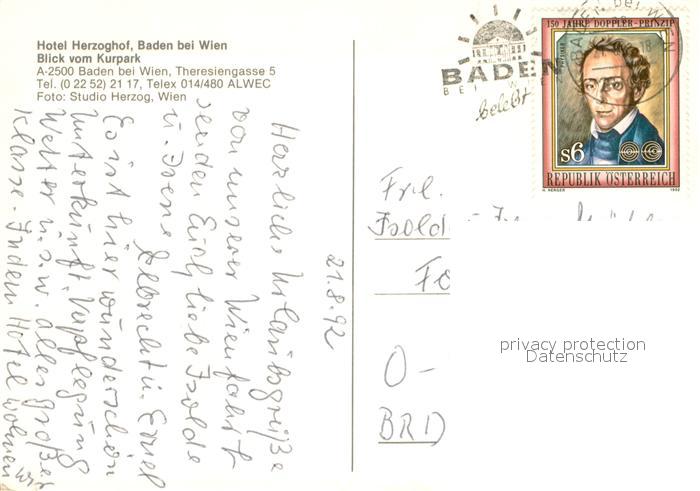 Hotel Herzoghof, Baden bei Wien
Blick vom Kurpark
A-2500 Baden bei Wien, Theresiengasse 5
Tel. (0 22 52) 21 17, Telex 014/480 ALWEC
Foto: Studio Herzog, Wien
BADEN
BEI WIEN
belebt
BADEN bei WIEN
150 JAHRE DOPPLER-PRINZIP
s6
REPUBLIK ÖSTERREICH
1992
21.8.92
Herzliche Urlaubsgrüße
von unserer Wienfahrt
senden Euch liebe Isolde
u. Irene
Es ist hier wunderschön
Unterkunft, Verpflegung
Wetter u.s.w. alles großer
Klasse. In dem Hotel wohnen wir
Frl.
Isold
Fo
O-
BRD
privacy protection
Datenschutz